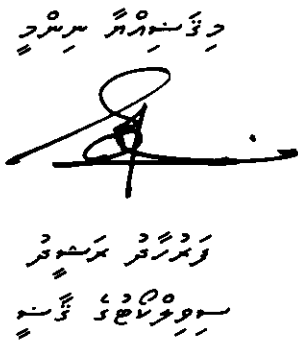 މިޤަޟިއްޔާ ނިންމީ
ފަރުހާދު ރަޝީދު
ސިވިލްކޯޓުގެ ޤާޟީ